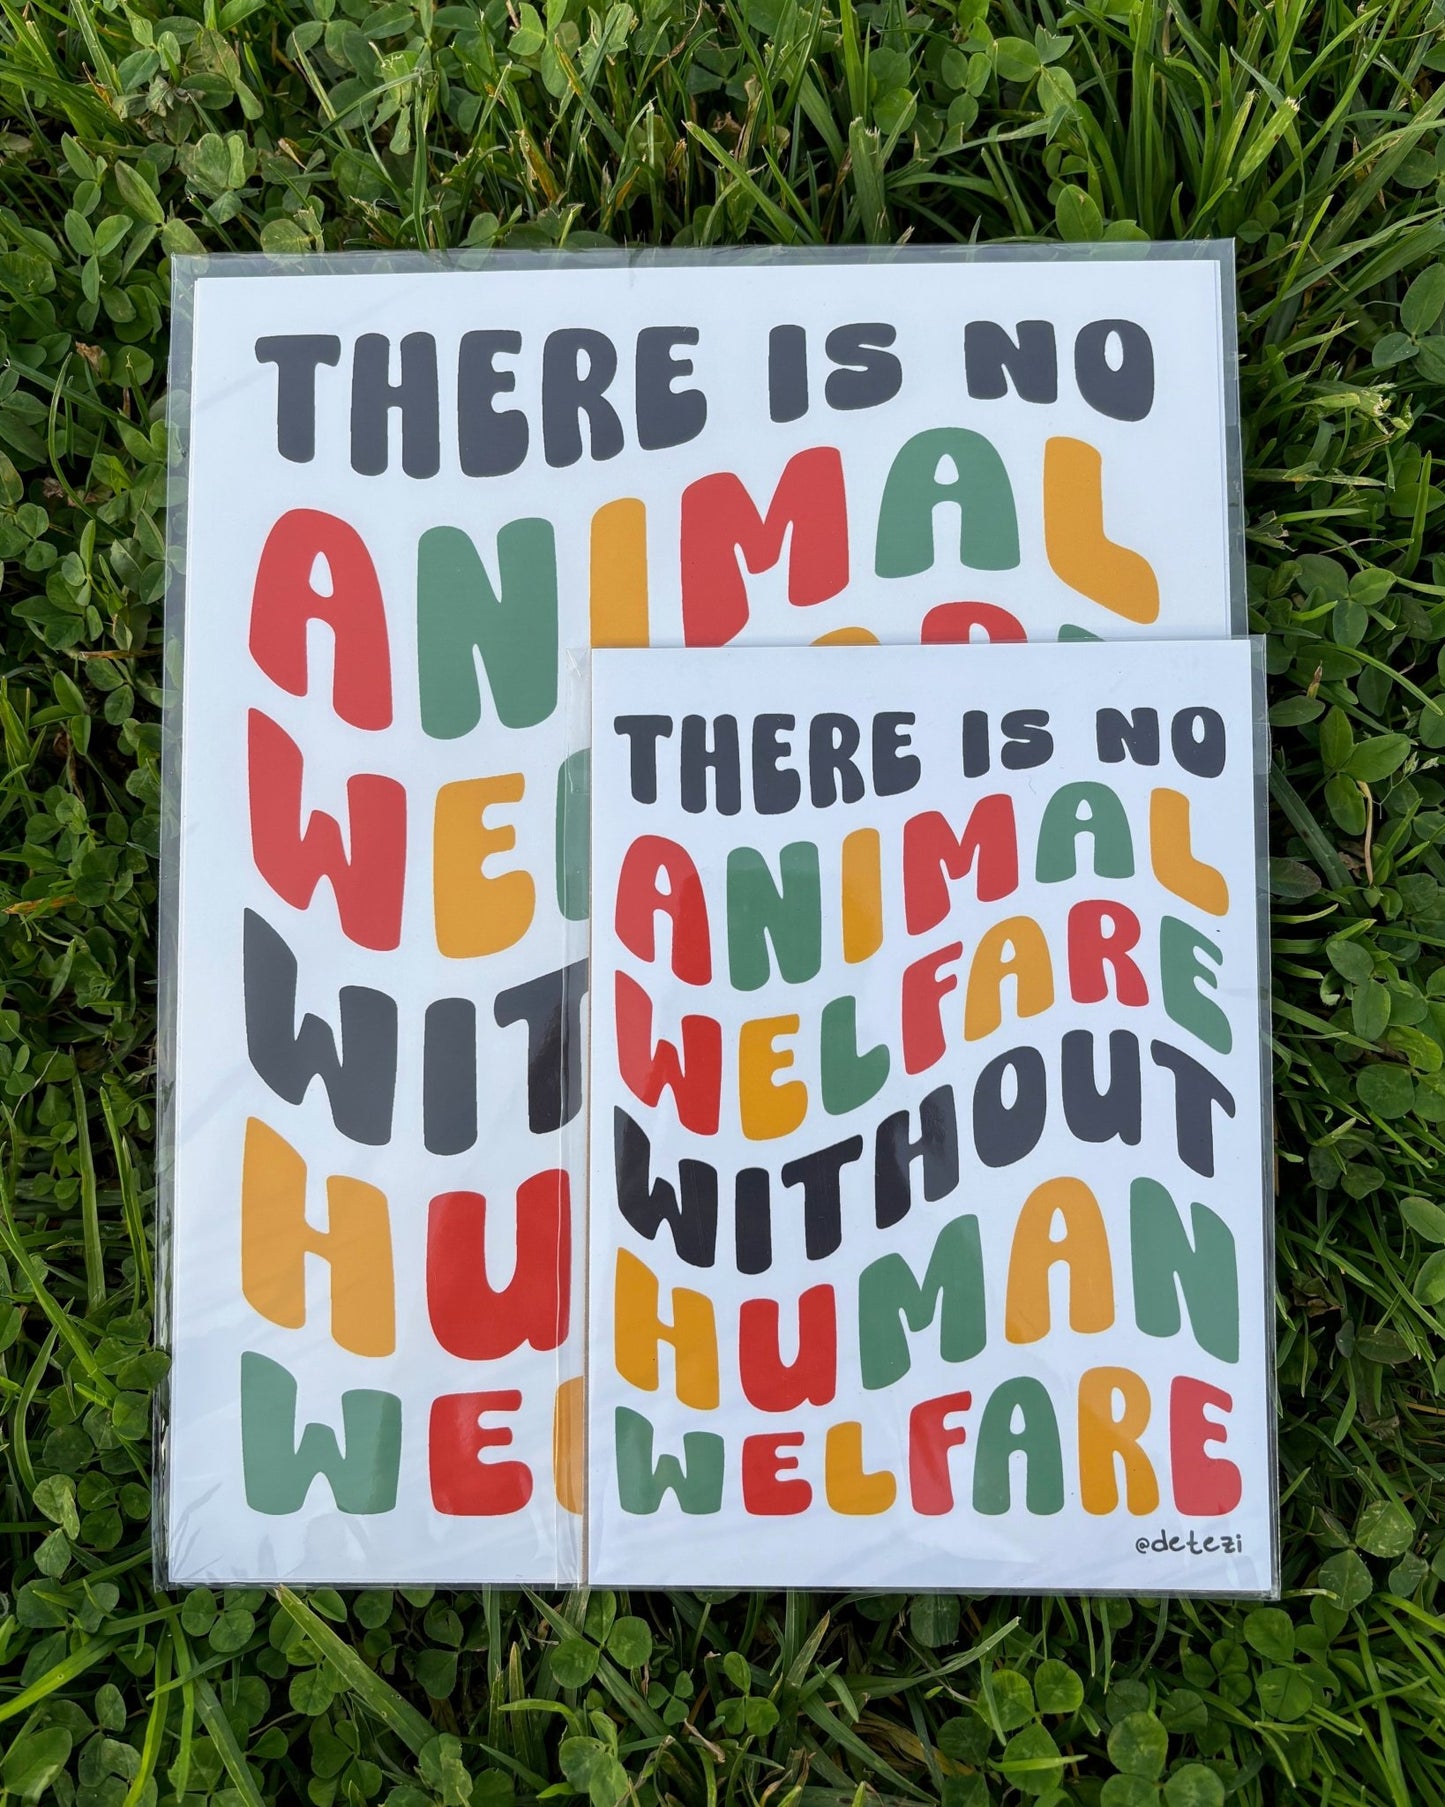 THERE IS NO
ANIMAL
WE
WIT
HU
WE
THERE IS NO
ANIMAL
WELFARE
WITHOUT
HUMAN
WELFARE
@detezi